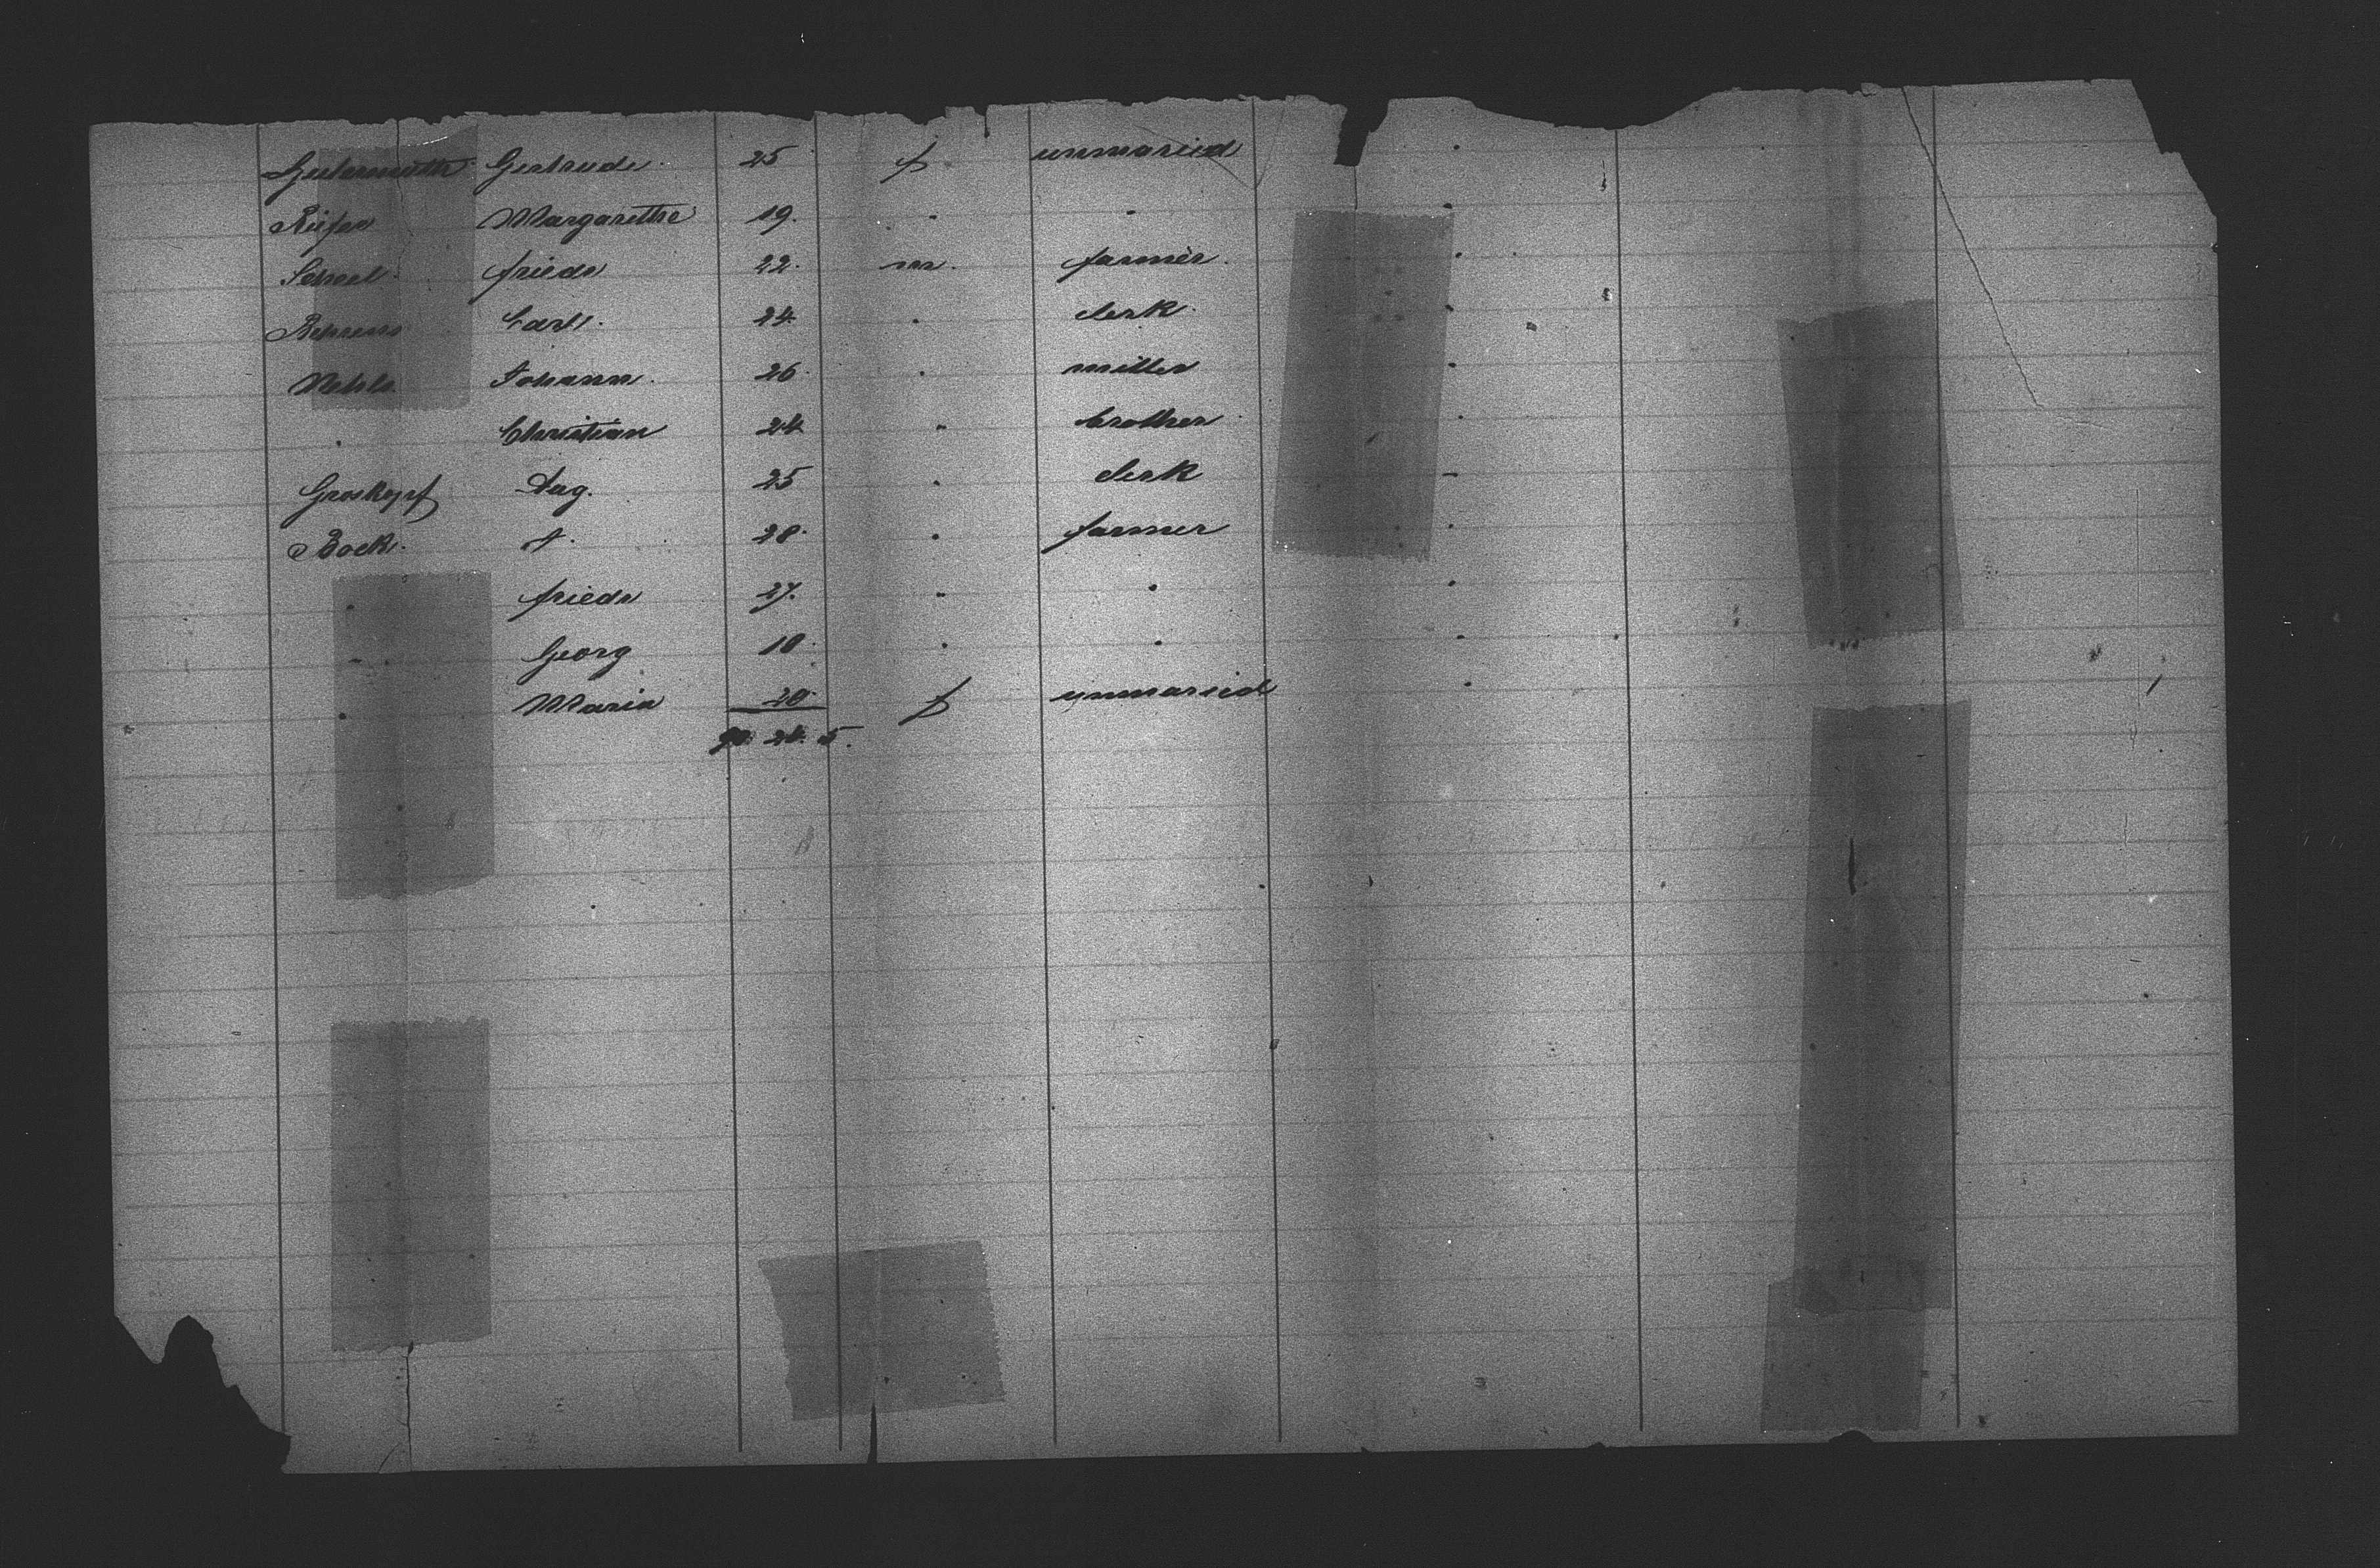 Gertrude 25 f unmaried
Margarethe 19. " "
Scheel friedr 22. m. farmer.
Behrens Carl. 24. " clerk.
Johann. 26. " miller
" Christian 24 " brother
Groskopf Aug. 25 " clerk
Bock. A. 28. " farmer
" friedr 27. " "
" Georg 18. " "
" Maria 20. f unmaried